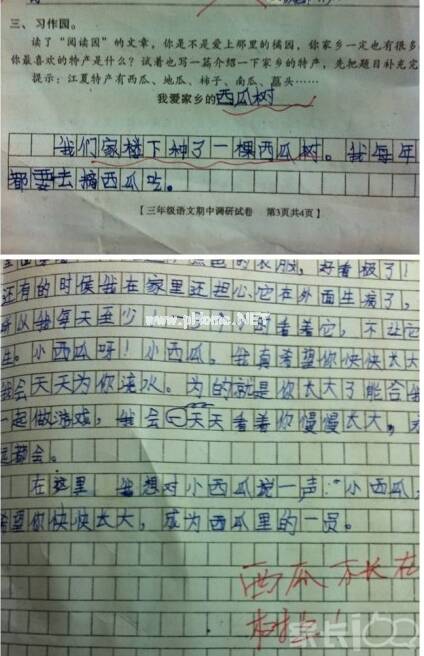 三、习作园。
读了“阅读园”的文章，你是不是爱上那里的橘园，你家乡一定也有很多
你最喜欢的特产是什么？试着也写一篇介绍一下家乡的特产，先把题目补充完
提示：江夏特产有西瓜、地瓜、柿子、南瓜、藠头……
我爱家乡的西瓜树
我们家楼下种了一棵西瓜树。我每年
都要去摘西瓜吃。
【三年级语文期中调研试卷 第3页共4页】
色的衣服，好看极了！
还有的时候我在家里还担心它在外面生病了，
所以我每天至少 时看着它，不让它
生。小西瓜呀！小西瓜，我真希望你快快长大
我会天天为你浇水。为的就是你长大了能合我
一起做游戏，我会天天看着你慢慢长大，永
远都会。
在这里，我想对小西瓜说一声：“小西瓜，
希望你快快长大，成为西瓜里的一员。
西瓜不长在
树上